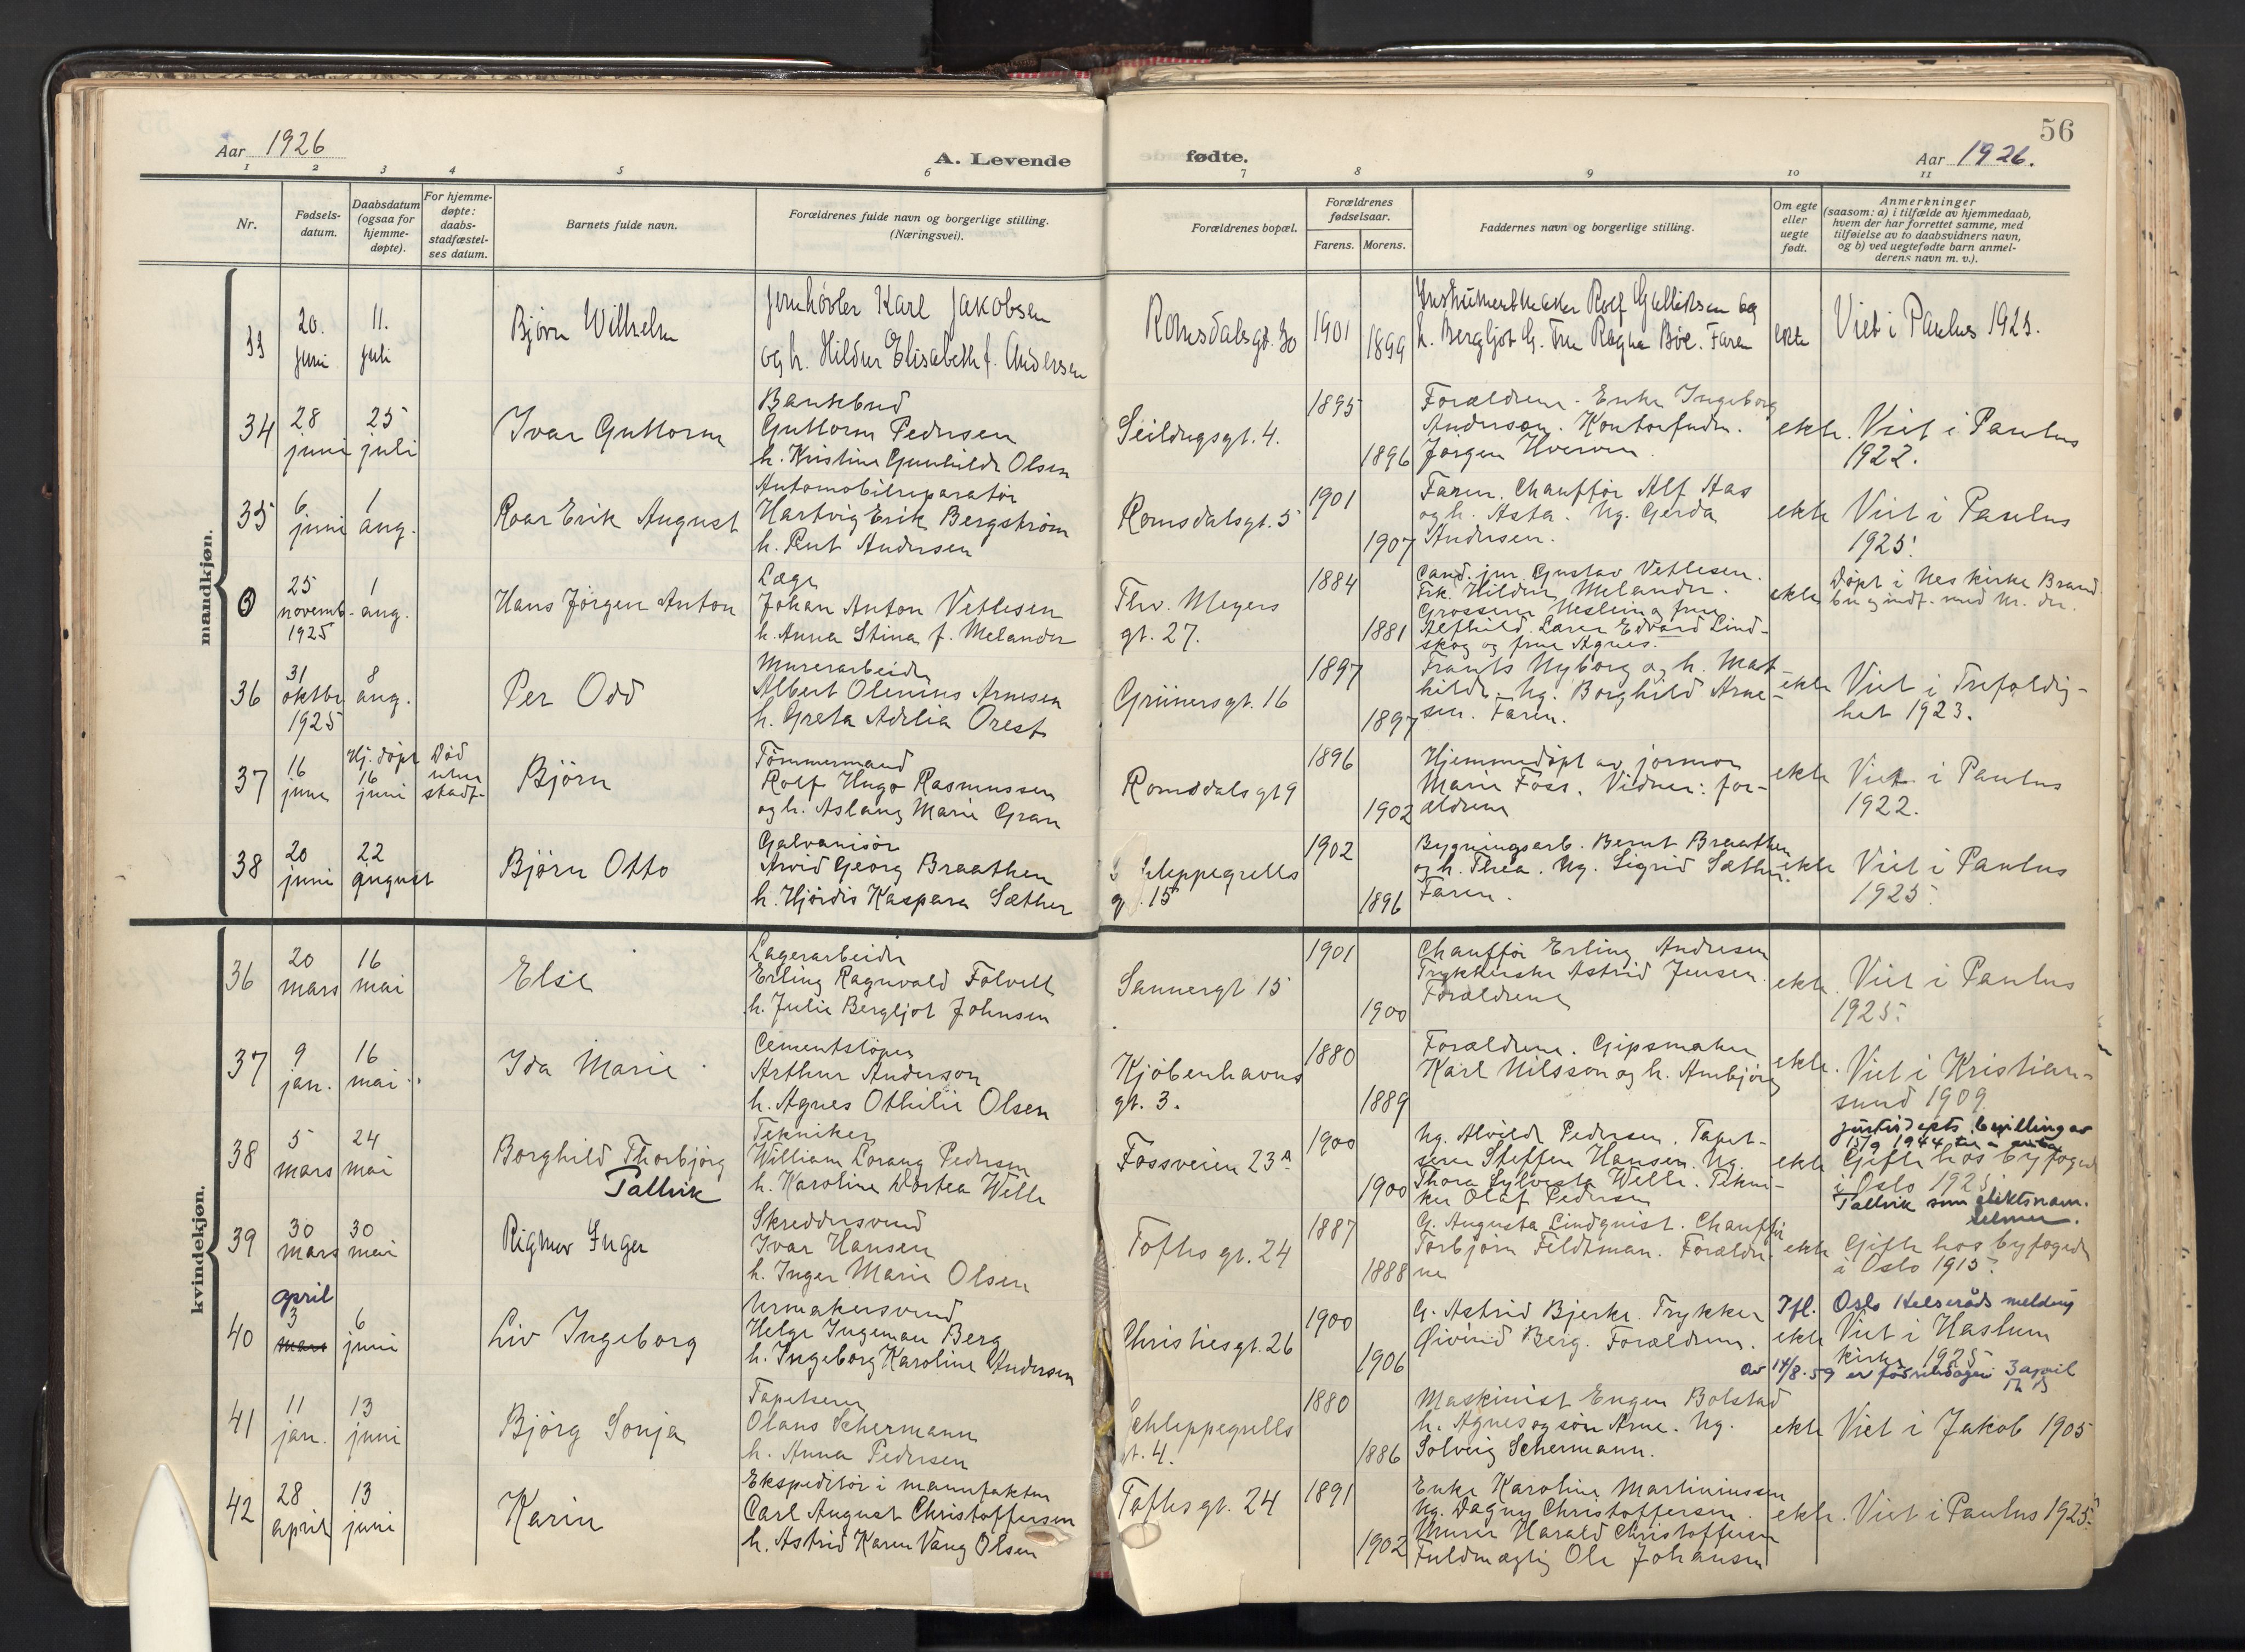 56
Aar 1926
A. Levende
fødte.
Aar 1926.
1 2 3 4 5 6 7 8 9 10 11
Nr.
Fødsels-
datum.
Daabsdatum
(ogsaa for
hjemme-
døpte).
For hjemme-
døpte:
daabs-
stadfæstel-
ses datum.
Barnets fulde navn.
Forældrenes fulde navn og borgerlige stilling.
(Næringsvei).
Forældrenes bopæl.
Forældrenes
fødselsaar.
Farens. Morens.
Faddernes navn og borgerlige stilling.
Om egte
eller
uegte
født.
Anmerkninger
(saasom: a) i tilfælde av hjemmedaab,
hvem der har forrettet samme, med
tilføielse av to daabsvidners navn,
og b) ved uegtefødte barn anmel-
derens navn m. v.).
mandkjøn.
33
20.
juni
11.
juli
Bjørn Wilhelm
Jernhøvler Karl Jakobsen
og h. Hildur Elisabeth f. Andersen
Romsdalsgt. 30
1901
1899
Instrumentmaker Rolf Gulliksen og
h. Bergljot G. Fru Ragna Bøe. Faren
ekte
Viet i Paulus 1925.
34
28
juni
25
juli
Ivar Guttorm
Bankbud
Guttorm Pedersen
h. Kristine Gunhilde Olsen
Seildugsgt. 4.
1895
1896
Forældrene. Enke Ingeborg
Anderson. Kontorfuldm.
Jørgen Hverven.
ekte.
Viet i Paulus
1922.
35
6
juni
1
aug.
Roar Erik August
Automobilreparatør
Hartvig Erik Bergstrøm
h. Rut Andersen
Romsdalsgt. 5
1901
1907
Faren. Chauffør Alf Aas
og h. Asta. Ug. Gerda
Andersen.
ekte
Viet i Paulus
1925.
0
25
novemb.
1925
1
aug.
Hans Jørgen Anton
Læge
Johan Anton Vetlesen
h. Anna Stina f. Melander
Thv. Meyers
gt. 27.
1884
1881
Cand. jur. Gustav Vetlesen.
Frk. Hildur Melander.
Grosserer Nesheim og frue
Alfhild. Lærer Edvard Lind-
skog og frue Agnes.
ekte
Døpt i Nes kirke Brand
bu og indf. med Nr. der.
36
31
oktbr
1925
8
aug.
Per Odd
Murerarbeider
Albert Olenius Arnesen
h. Greta Adelia Orest
Grünersgt. 16
1897
1897
Frants Nyborg og h. Mat-
hilde. Ug. Borghild Arne-
sen. Faren.
ekte
Viet i Trefoldig-
het 1923.
37
16
juni
Hj. døpt
16
juni
Død
uten
stadf.
Bjørn
Tømmermand
Rolf Hugo Rasmussen
og h. Aslaug Marie Gran
Romsdalsgt 9
1896
1902
Hjemmedøpt av jormor
Marie Foss. Vidner: for-
ældrene
ekte
Viet i Paulus
1922.
38
20
juni
22
august
Bjørn Otto
Galvanisør
Arvid Georg Braathen
h. Hjørdis Kaspara Sæther
Schleppegrells
gt. 15
1902
1896
Bygningsarb. Bernt Braathen
og h. Thea. Ug. Sigrid Sæther.
Faren.
ekte
Viet i Paulus
1925.
kvindekjøn.
36
20
mars
16
mai
Else
Lagerarbeider
Erling Ragnvald Folvell
h. Julie Bergljot Johnsen
Sannergt 15
1901
1900
Chauffør Erling Andresen
Trykkerske Astrid Jensen.
Forældrene
ekte.
Viet i Paulus
1925.
37
9
jan.
16
mai
Ida Marie
Cementstøper
Arthur Anderson
h. Agnes Othilie Olsen
Kjøbenhavns
gt. 3.
1880
1889
Forældrene. Gipsmaker
Karl Nilsson og h. Ambjørg
ekte.
Viet i Kristian-
sund 1909.
38
5
mars
24
mai
Borghild Thorbjørg
Tallvik
Tekniker
William Lorang Pedersen
h. Karoline Dortea Welle
Fossveien 23a
1900
1900
Ug. Alvilde Pedersen. Tapet-
serer Steffen Hansen. Ug.
Thora Sylvesta Welle. Tekni-
ker Olaf Pedersen
ekte
justisdepts bevilling av
15/9 1944 til å anta
Gifte hos byfoged
i Oslo 1925.
Tallvik som slektsnavn.
39
30
mars
30
mai
Rigmor Inger
Skreddersvend
Ivar Hansen
h. Inger Marie Olsen
Toftes gt. 24
1887
1888
G. Augusta Lindquist. Chauffør
Torbjørn Feldtman. Forældre-
ne
ekte
Gifte hos byfogden
i Oslo 1915.
40
april
3
mars
6
juni
Liv Ingeborg
Urmakersvend
Helge Ingeman Berg
h. Ingeborg Karoline Andersen
Christiesgt. 26
1900
1906
G. Astrid Bjerke. Trykker
Øivind Berg. Forældrene.
ekte
Ifl. Oslo Helseråds melding
Viet i Haslum
kirke 1925
av 14/8-59 er fødselsdagen 3 april
41
11
jan.
13
juni
Bjørg Sonja
Tapetserer
Olaus Schermann
h. Anna Pedersen
Schleppegrells
gt. 4.
1880
1886
Maskinist Eugen Bolstad
h. Agnes og søn Arne. Ug.
Solveig Schermann.
ekte
Viet i Jakob 1905
42
28
april
13
juni
Karin
Ekspeditør i manufaktur
Carl August Christoffersen
h. Astrid Karen Vang Olsen
Toftes gt. 24
1891
1902
Enke Karoline Martiniussen
Ug. Dagny Christoffersen.
Murer Harald Christoffersen
Fuldmægtig Ole Johansen
ekte.
Viet i Paulus 1925.